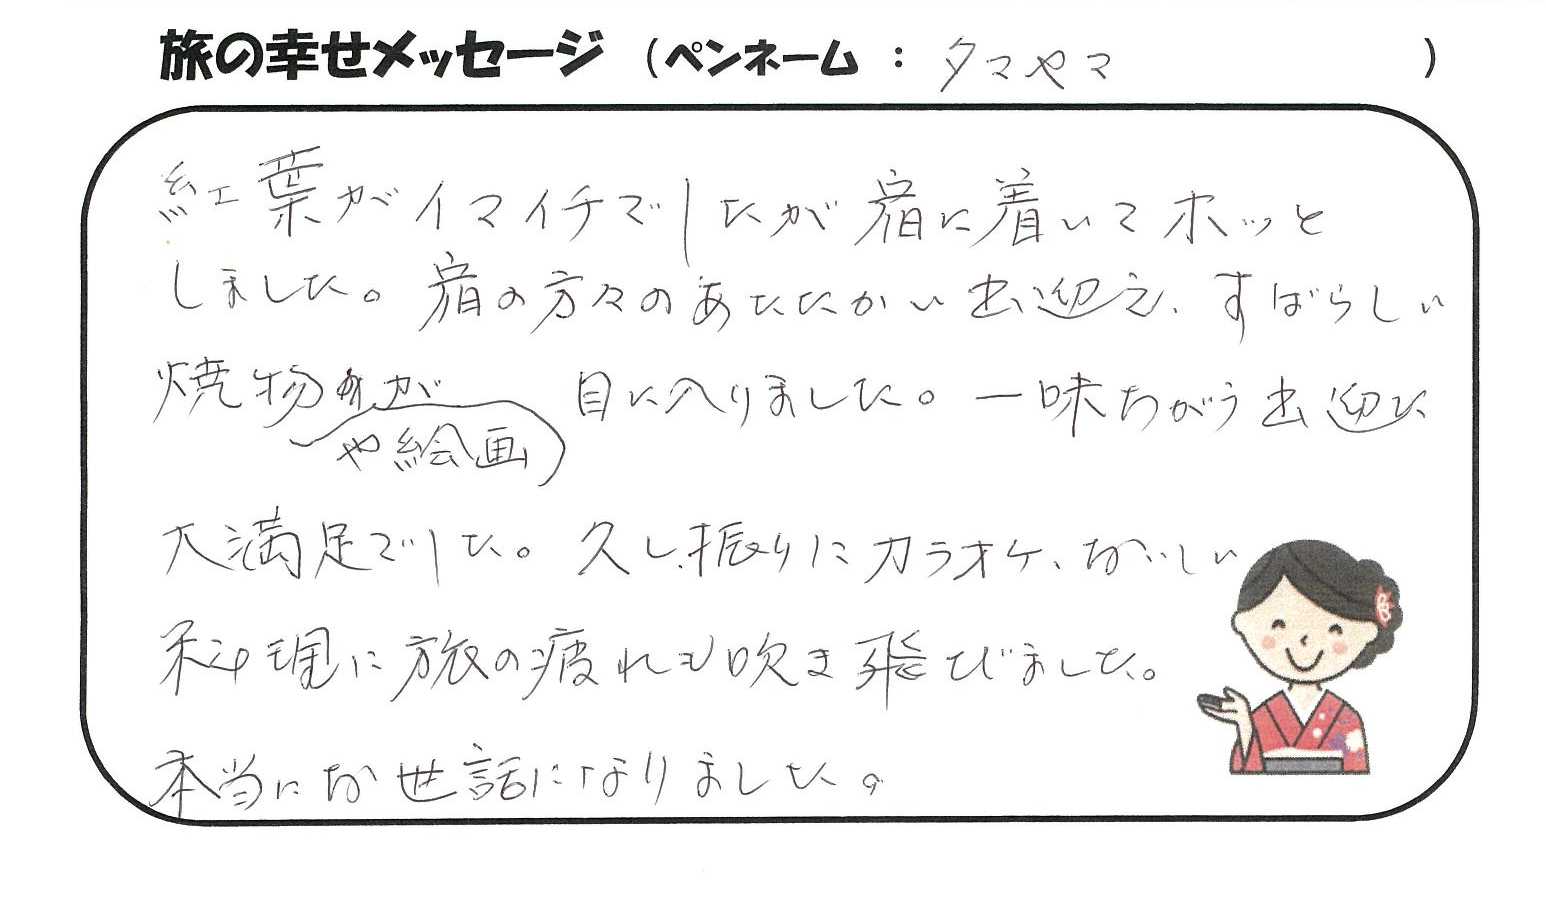 旅の幸せメッセージ (ペンネーム : タマやマ )
紅葉がイマイチでしたが宿に着いてホッと
しました。宿の方々のあたたかい出迎え、すばらしい
焼物が目に入りました。一味ちがう出迎に
や絵画
大満足でした。久し振りにカラオケ、おいしい
料理に旅の疲れも吹き飛びました。
本当にお世話になりました。